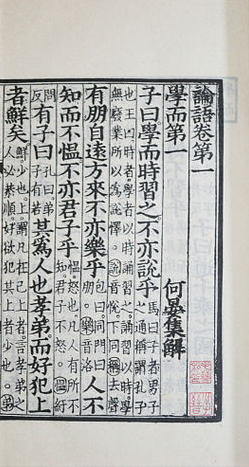 論語卷第一
學而第一 何晏集解
子曰學而時習之不亦說乎馬曰子者男子之通稱謂孔子
也王曰時者學者以時誦習之誦習以時學無廢業所以爲說懌說音悅
有朋自遠方來不亦樂乎包曰同門曰朋樂音洛人不
知而不慍不亦君子乎慍怒也凡人有所不知君子不怒慍紆
問反有子曰孔曰弟子有若其爲人也孝弟而好犯上
者鮮矣鮮少也上謂凡在己上者言孝弟之人必恭順好欲犯其上者少也弟